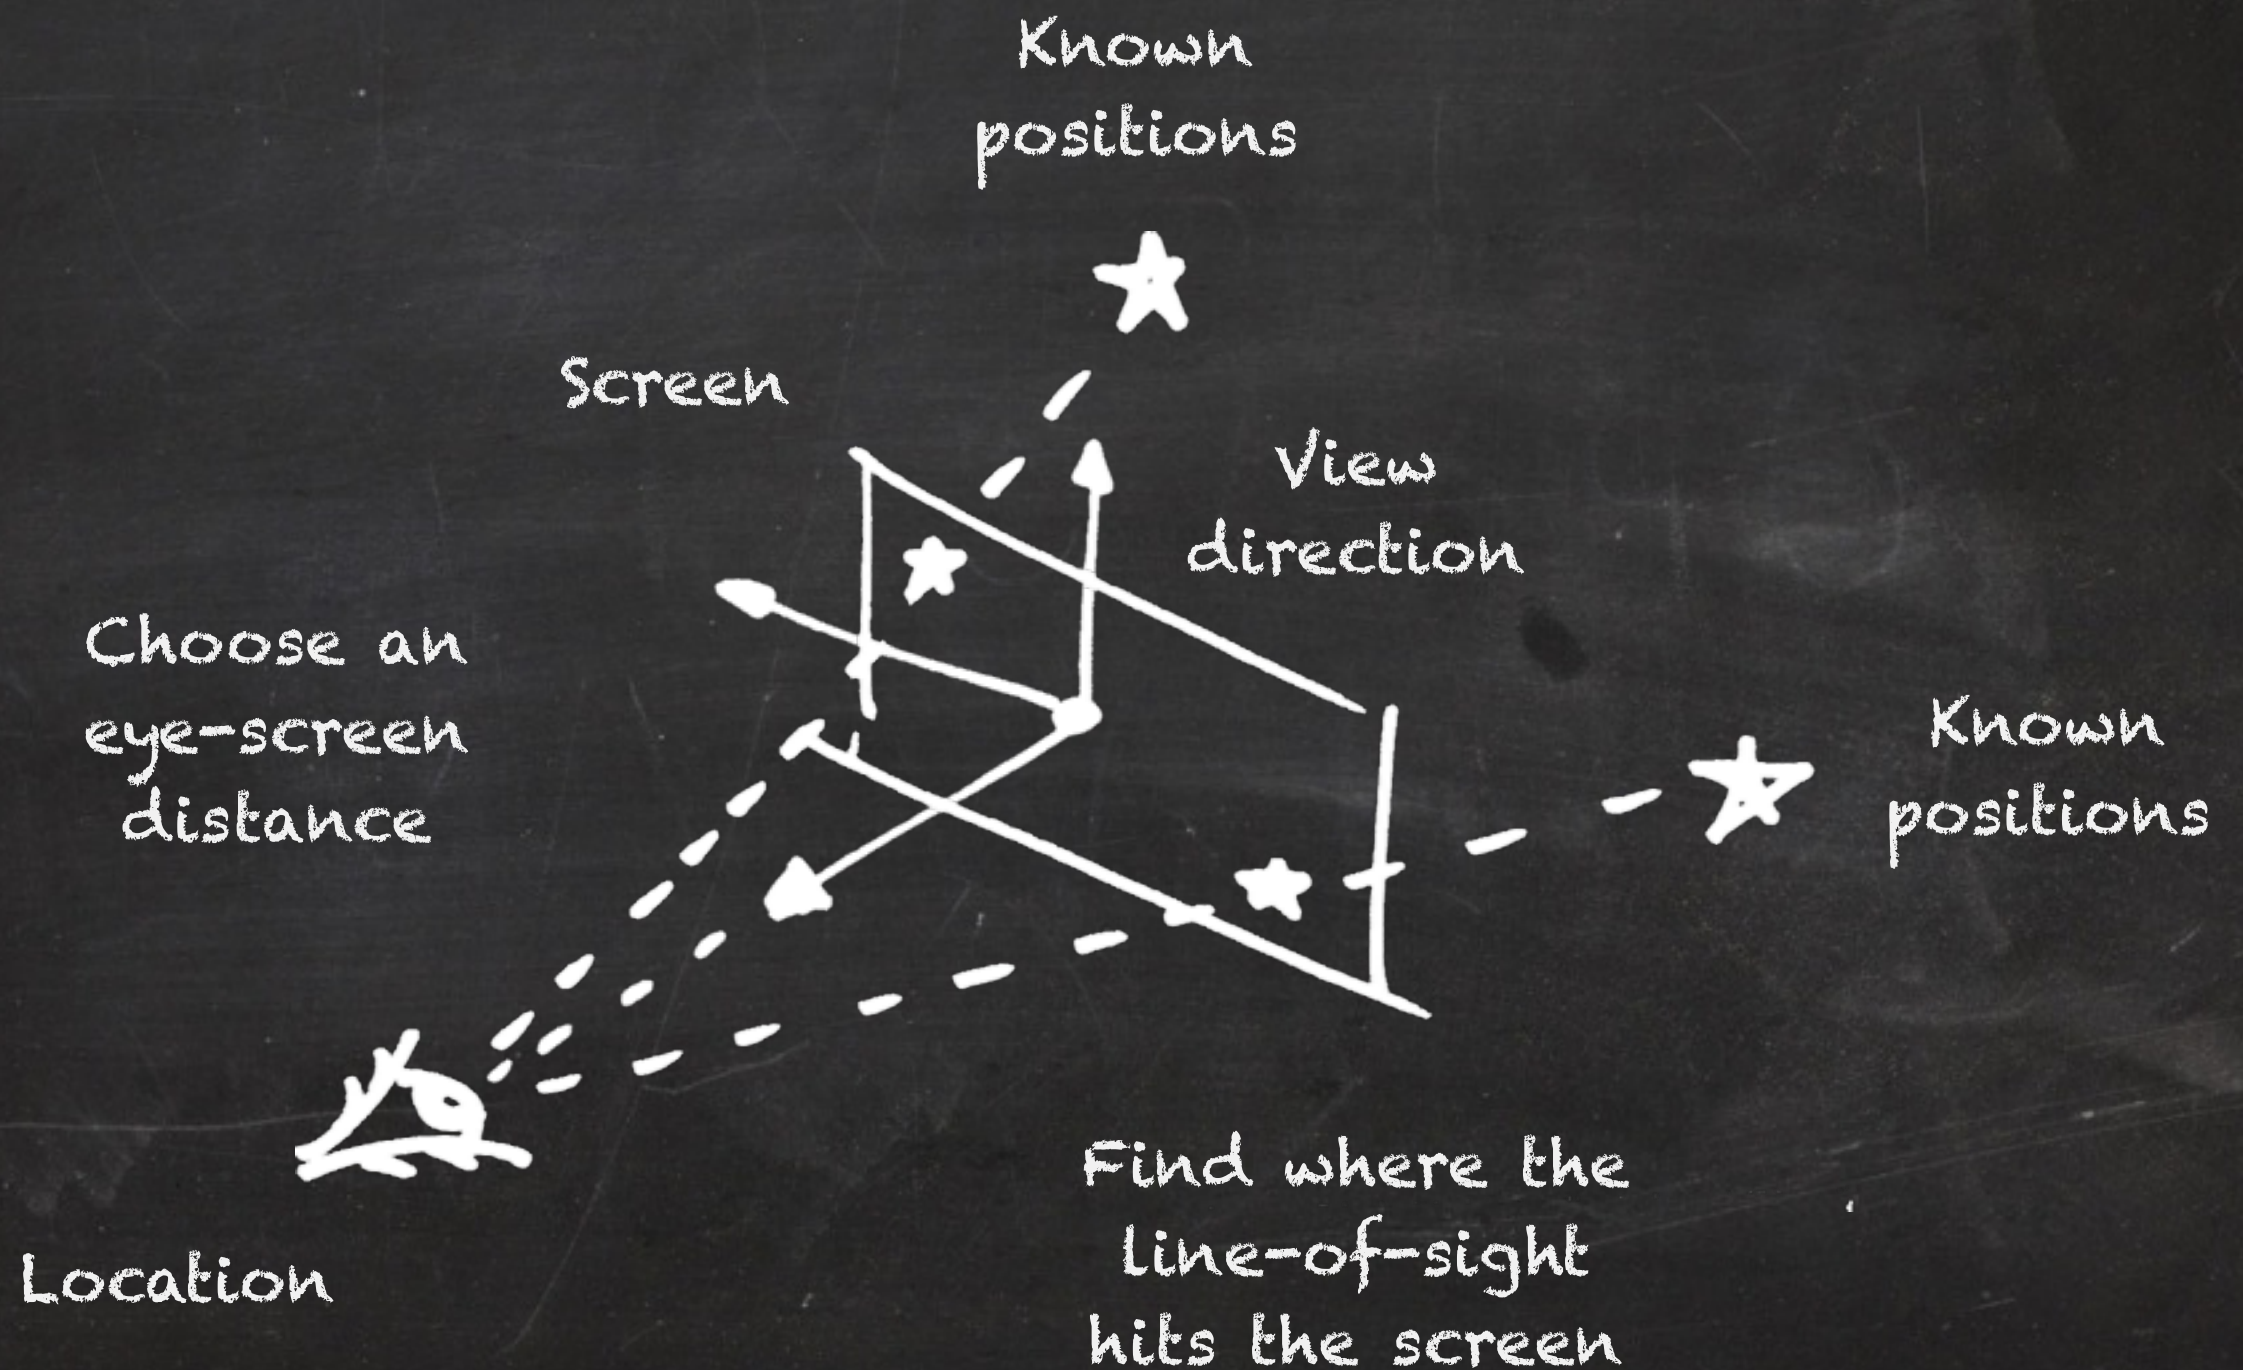 Known
positions
Screen
View
direction
Choose an
eye-screen
distance
Known
positions
Find where the
line-of-sight
hits the screen
Location